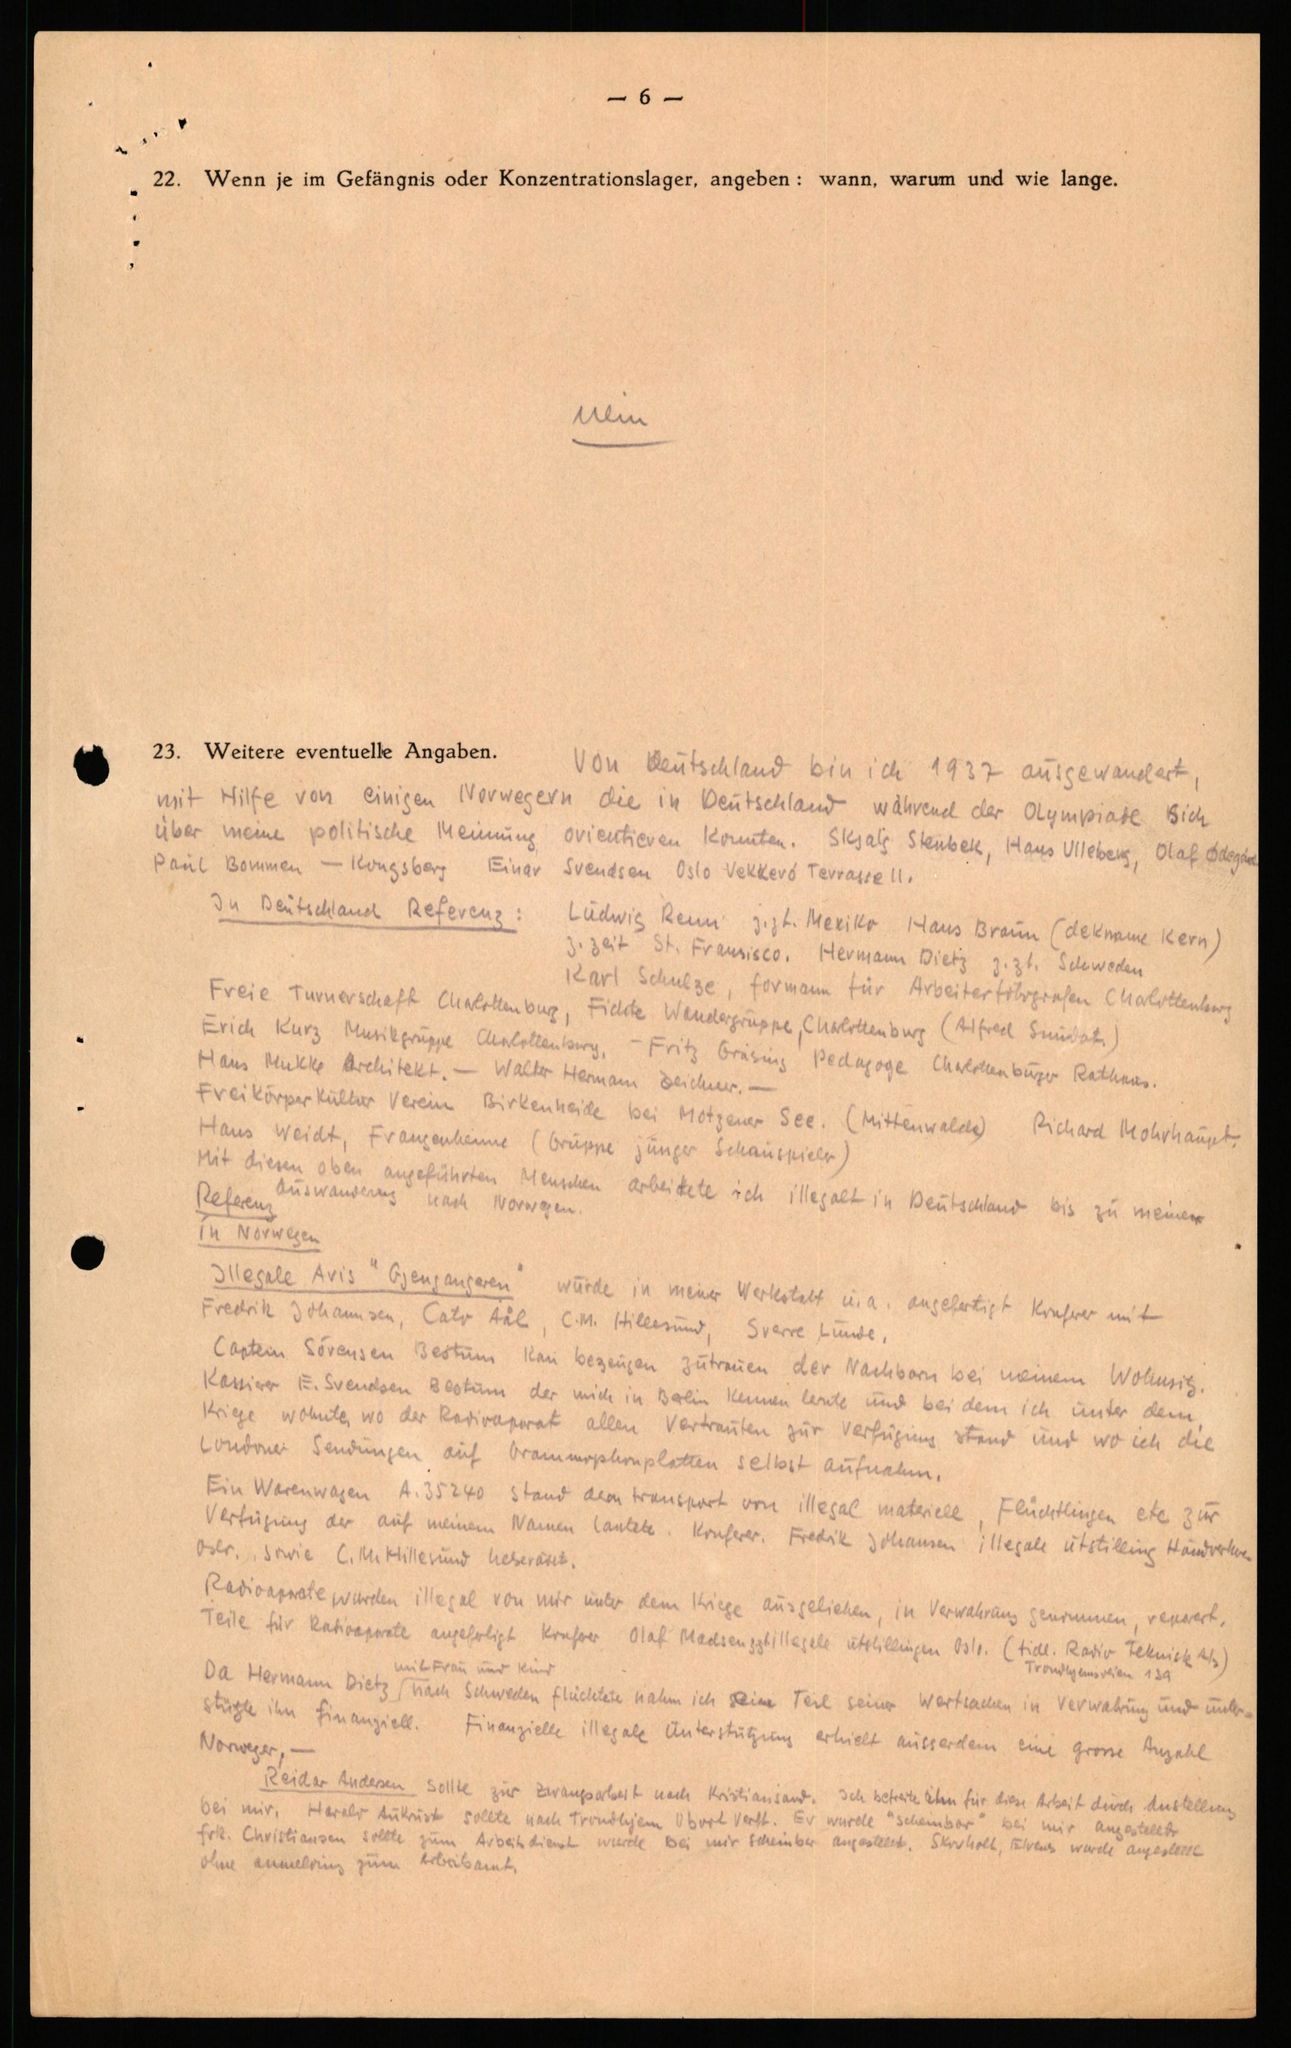 — 6 —
22. Wenn je im Gefängnis oder Konzentrationslager, angeben: wann, warum und wie lange.
Nein
23. Weitere eventuelle Angaben.
Von Deutschland bin ich 1937 ausgewandert,
mit Hilfe von einigen Norwegern die in Deutschland während der Olympiade sich
über meine politische Meinung orientieren konnten. Skjalg Stenbek, Hans Ulleberg, Olaf Ødegård
Paul Bommen — Kongsberg Einar Svendsen Oslo Vekkerö Terrasse 11.
In Deutschland Referenz: Ludwig Renn z.zt. Mexiko Hans Braun (dekname Kern)
z.zeit St. Fransisco. Hermann Dietz z.zt. Schweden
Karl Schulze, formann für Arbeiterfotografen Charlottenburg
Freie Turnerschaft Charlottenburg, Fichte Wandergruppe, Charlottenburg (Alfred)
Erich Kurz Musikgruppe Charlottenburg, — Fritz Grasing Pedagoge Charlottenburger Rathaus.
Hans Mukke Architekt. — Walter Hermann Zeichner. —
Freikörperkultur Verein Birkenheide bei Motzener See. (Mittenwalde) Richard Mohrhaupt.
Hans Weidt, (Gruppe junger Schauspieler)
Mit diesen oben angeführten Menschen arbeitete ich illegalt in Deutschland bis zu meiner
Auswanderung nach Norwegen.
Referenz
in Norwegen
Illegale Avis "Gjengangeren" würde in meiner Werkstatt u.a. angefertigt Konferer mit
Fredrik Johannsen, Cato Aål, C.M. Hillesund, Sverre Lunde.
Captein Sörensen Bestum kan bezeugen zutrauen der Nachbarn bei meinem Wohnsitz.
Kassierer E. Svendsen Bestum der mich in Berlin kennen lernte und bei dem ich unter dem
Kriege wohnte, wo der Radioaparat allen Vertrauten zur Verfügung stand und wo ich die
Londoner Sendungen auf Grammophonplatten selbst aufnahm.
Ein Warenwagen A.35240 stand dem transport von illegal materiell, Flüchtlingen etc zur
Verfügung der auf meinem Namen lautete. Konferer. Fredrik Johansen illegale utstilling
Oslo. sowie C.M. Hillesund
Radioaparate wurden illegal von mir unter dem Kriege ausgeliehen, in Verwahrung genommen, reparert.
Teile für Radioaparate angefertigt Konferer Olaf Madsen z.zt illegale utstillingen Oslo. (tidl. Radio Teknisk A/s)
Trondhjemsveien 139
Da Hermann Dietz mit Frau und Kind nach Schweden flüchtete nahm ich seine Teil seiner Wertsachen in Verwahrung und unter-
stüzte ihn finanziell. Finanzielle illegale Unterstützung erhielt ausserdem eine grosse Anzahl
Norweger, —
Reidar Andersen sollte zur Zwangsarbeit nach Kristiansand. Ich befreite ihn für diese Arbeit durch Anstellung
bei mir. Harald Aukrust sollte nach Trondhjem Ubort Verft. Er wurde "scheinbar" bei mir angestellt
frk. Christiansen sollte zum Arbeitsdienst wurde bei mir scheinbar angestellt. Skovholt, wurde angestellt
ohne anmeldung zum Arbeitsamt.